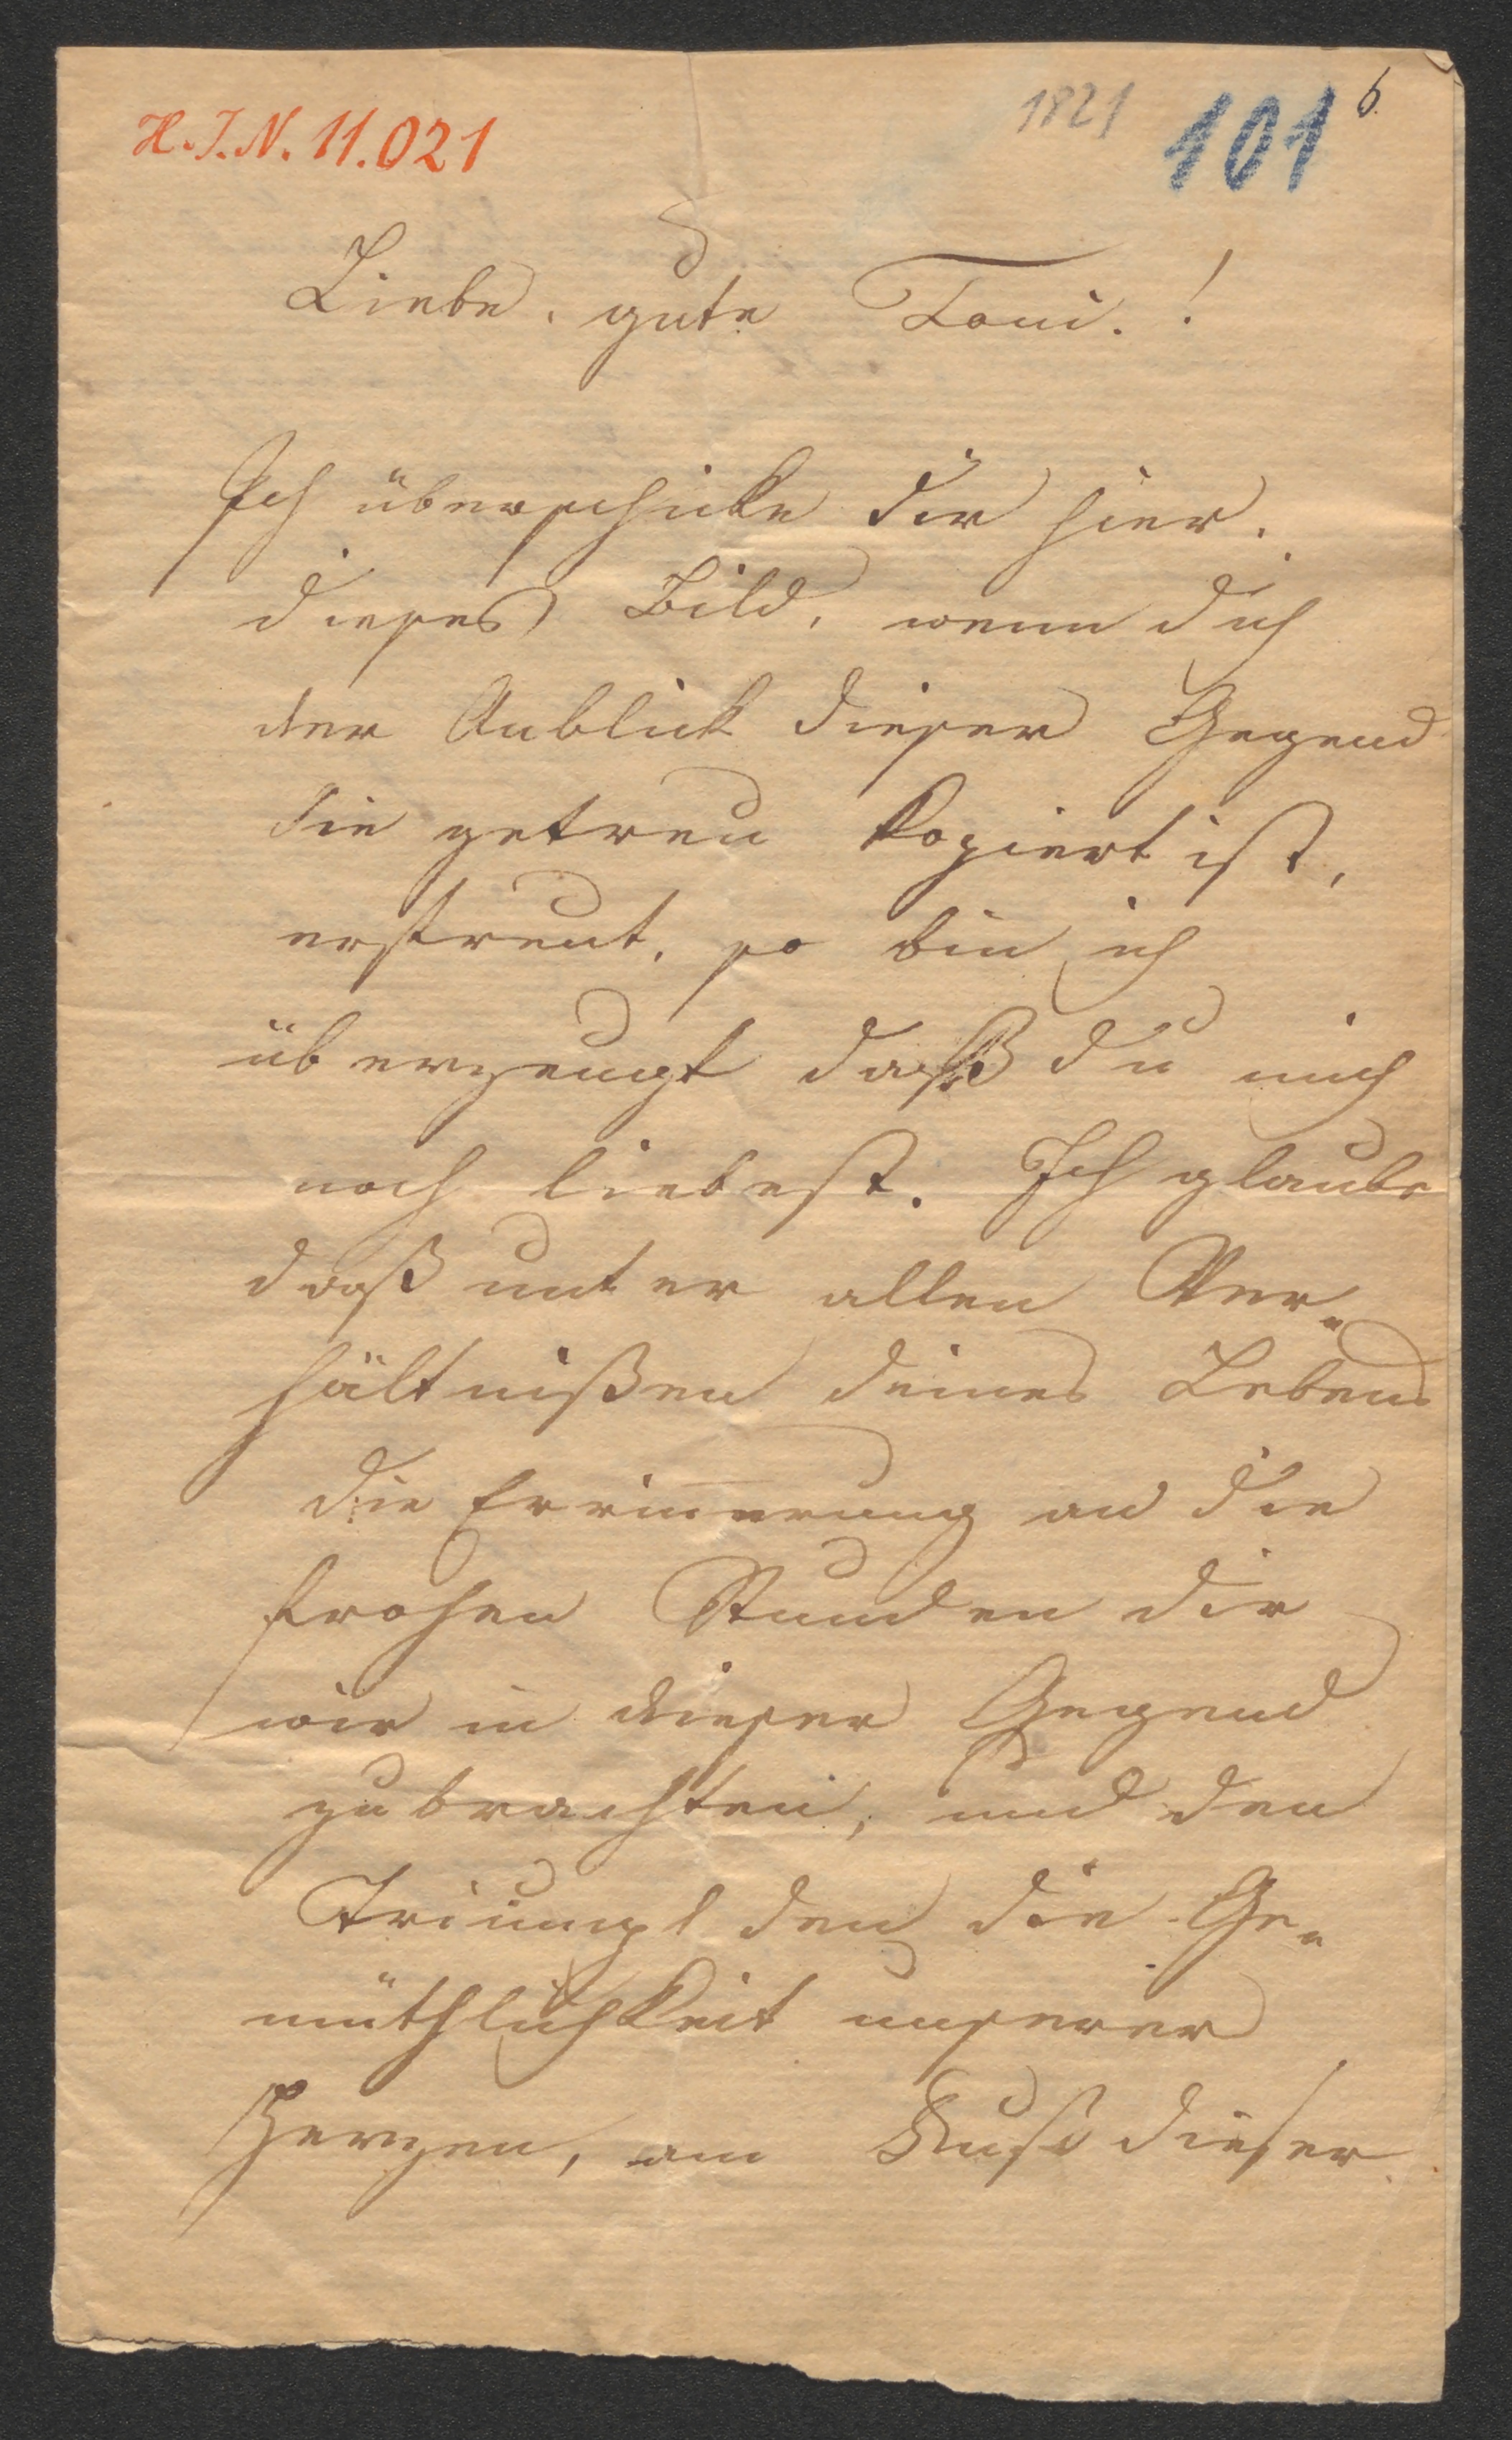 H.I.N. 11.021
1821
101
6.
Liebe, gute Toni.!
Ich überschicke dir hier.
dieses Bild, wenn dich
der Anblick dieser Gegend
die getreu kopiert ist,
erfreut, so bin ich
überzeugt daß du mich
noch liebest. Ich glaube
daß unter allen Ver„
hältnißen deines Lebens
die Errinnerung an die
frohen Stunden die
wir in dieser Gegend
zubrachten, und den
Triumpf den die Ge„
müthlichkeit unserer
Herzen, am Fuße dieser